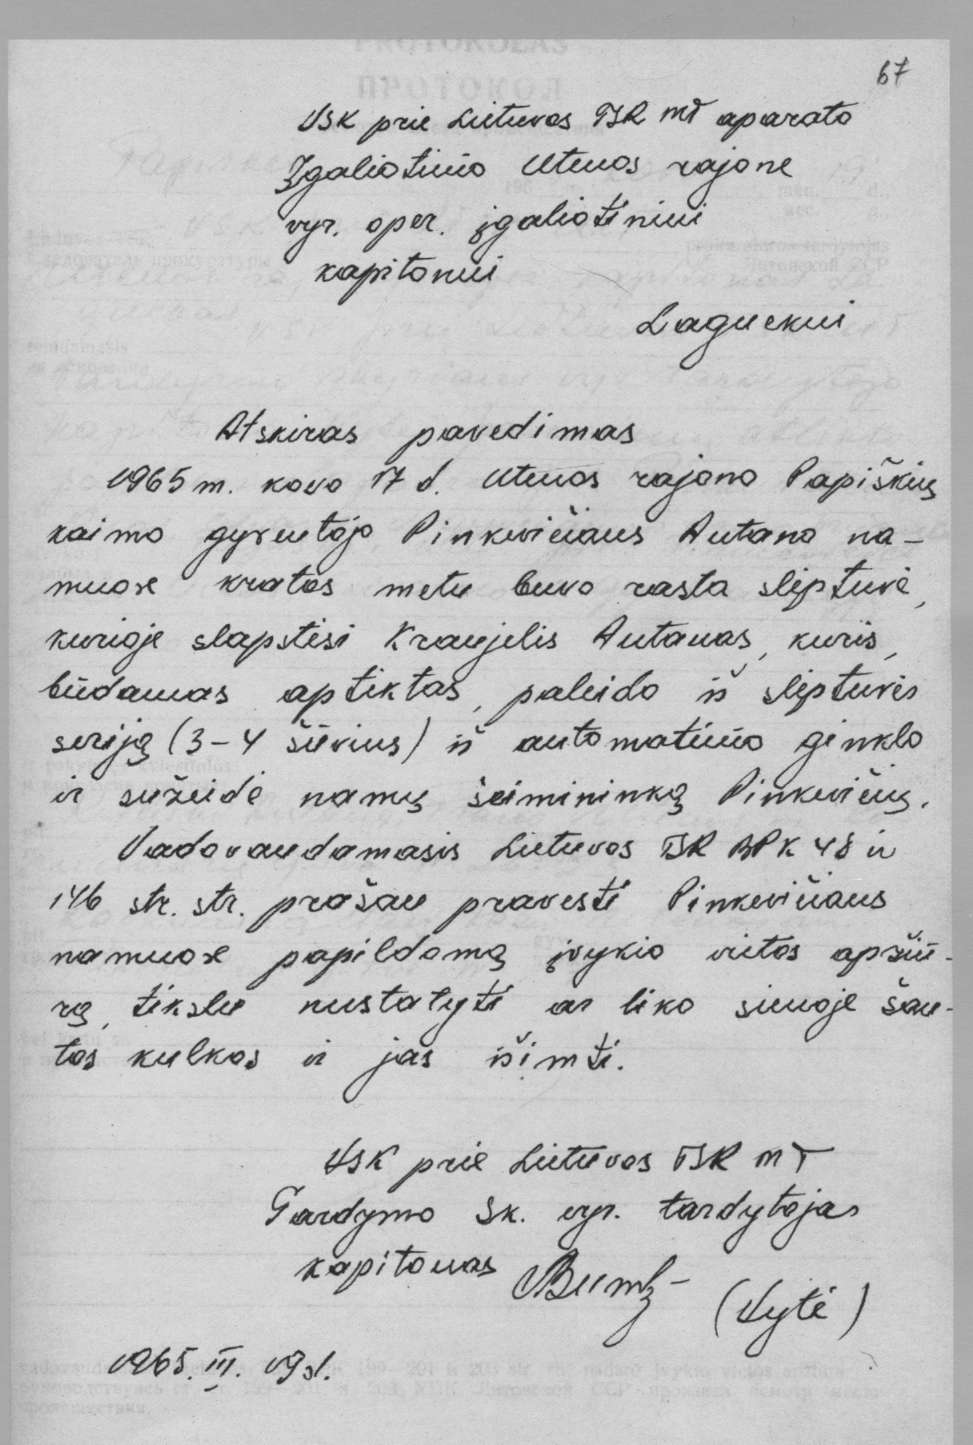 67
VSK prie Lietuvos TSR MT aparato
Įgaliotinio Utenos rajone
vyr. oper. įgaliotiniui
kapitonui
Laguckui
Atskiras pavedimas
1965 m. kovo 17 d. Utenos rajono Papiškių
kaimo gyventojo Pinkevičiaus Antano na-
muose kratos metu buvo rasta slėptuvė,
kurioje slapstėsi Kraujelis Antanas, kuris,
būdamas aptiktas, paleido iš slėptuvės
seriją (3-4 šūvius) iš automatinio ginklo
ir sužeidė namų šeimininką Pinkevičių.
Vadovaudamasis Lietuvos TSR BPK 48 ir
146 str. str. prašau pravesti Pinkevičiaus
namuose papildomą įvykio vietos apžiū-
rą, tikslu nustatyti ar liko sienoje šau-
tos kulkos ir jas išimti.
VSK prie Lietuvos TSR MT
Tardymo sk. vyr. tardytojas
kapitonas
(Vytė)
1965. III. 19 d.